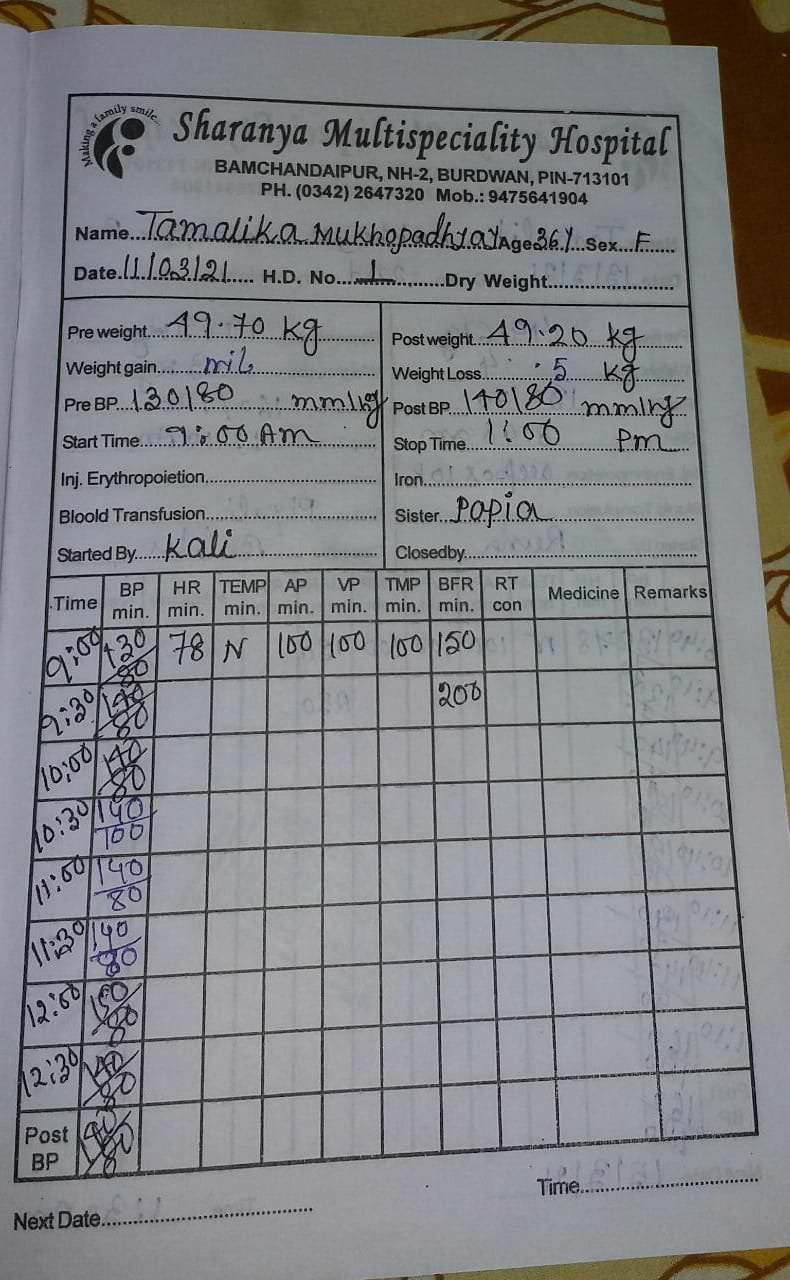 Making a family smile..
Sharanya Multispeciality Hospital
BAMCHANDAIPUR, NH-2, BURDWAN, PIN-713101
PH. (0342) 2647320 Mob.: 9475641904
Name...Tamalika Mukhopadhyay Age 36 Y Sex...F......
Date 11/03/21.... H.D. No....1..........Dry Weight........................
Pre weight....49.70 kg............
Post weight..49.20 kg........
Weight gain......nil....................
Weight Loss..........5 kg........
Pre BP...130/80 mm/hg
Post BP 140/80 mm/hg
Start Time....9:00 Am..........
Stop Time...1:00 Pm...
Inj. Erythropoietion..................................
Iron.....................................................
Bloold Transfusion..................................
Sister..Papia.............................
Started By.....Kali............................
Closedby..............................................
Time BP min. HR min. TEMP min. AP min. VP min. TMP min. BFR min. RT con Medicine Remarks
9:00 130/80 78 N 100 100 100 150
9:30 140/80 200
10:00 140/80
10:30 140/100
11:00 140/80
11:30 140/80
12:00 150/80
12:30 140/80
Post BP 140/80
Time.....................................
Next Date.........................................